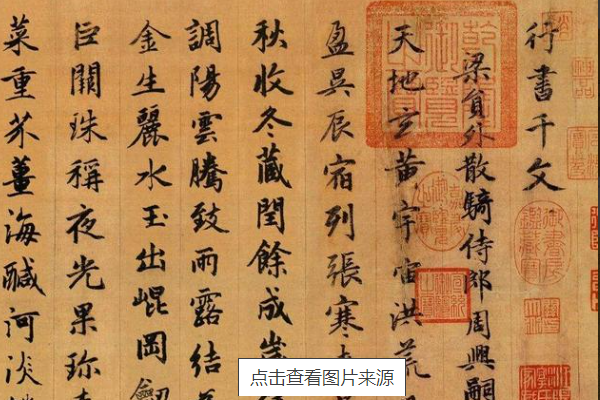 行書千文
梁員外散騎侍郎周興嗣
天地玄黄宇宙洪荒
盈昃辰宿列張寒
秋收冬藏閏餘成歲
調陽雲騰致雨露結
金生麗水玉出崐岡
巨闕珠稱夜光果珍
菜重芥薑海醎河淡
点击查看图片来源